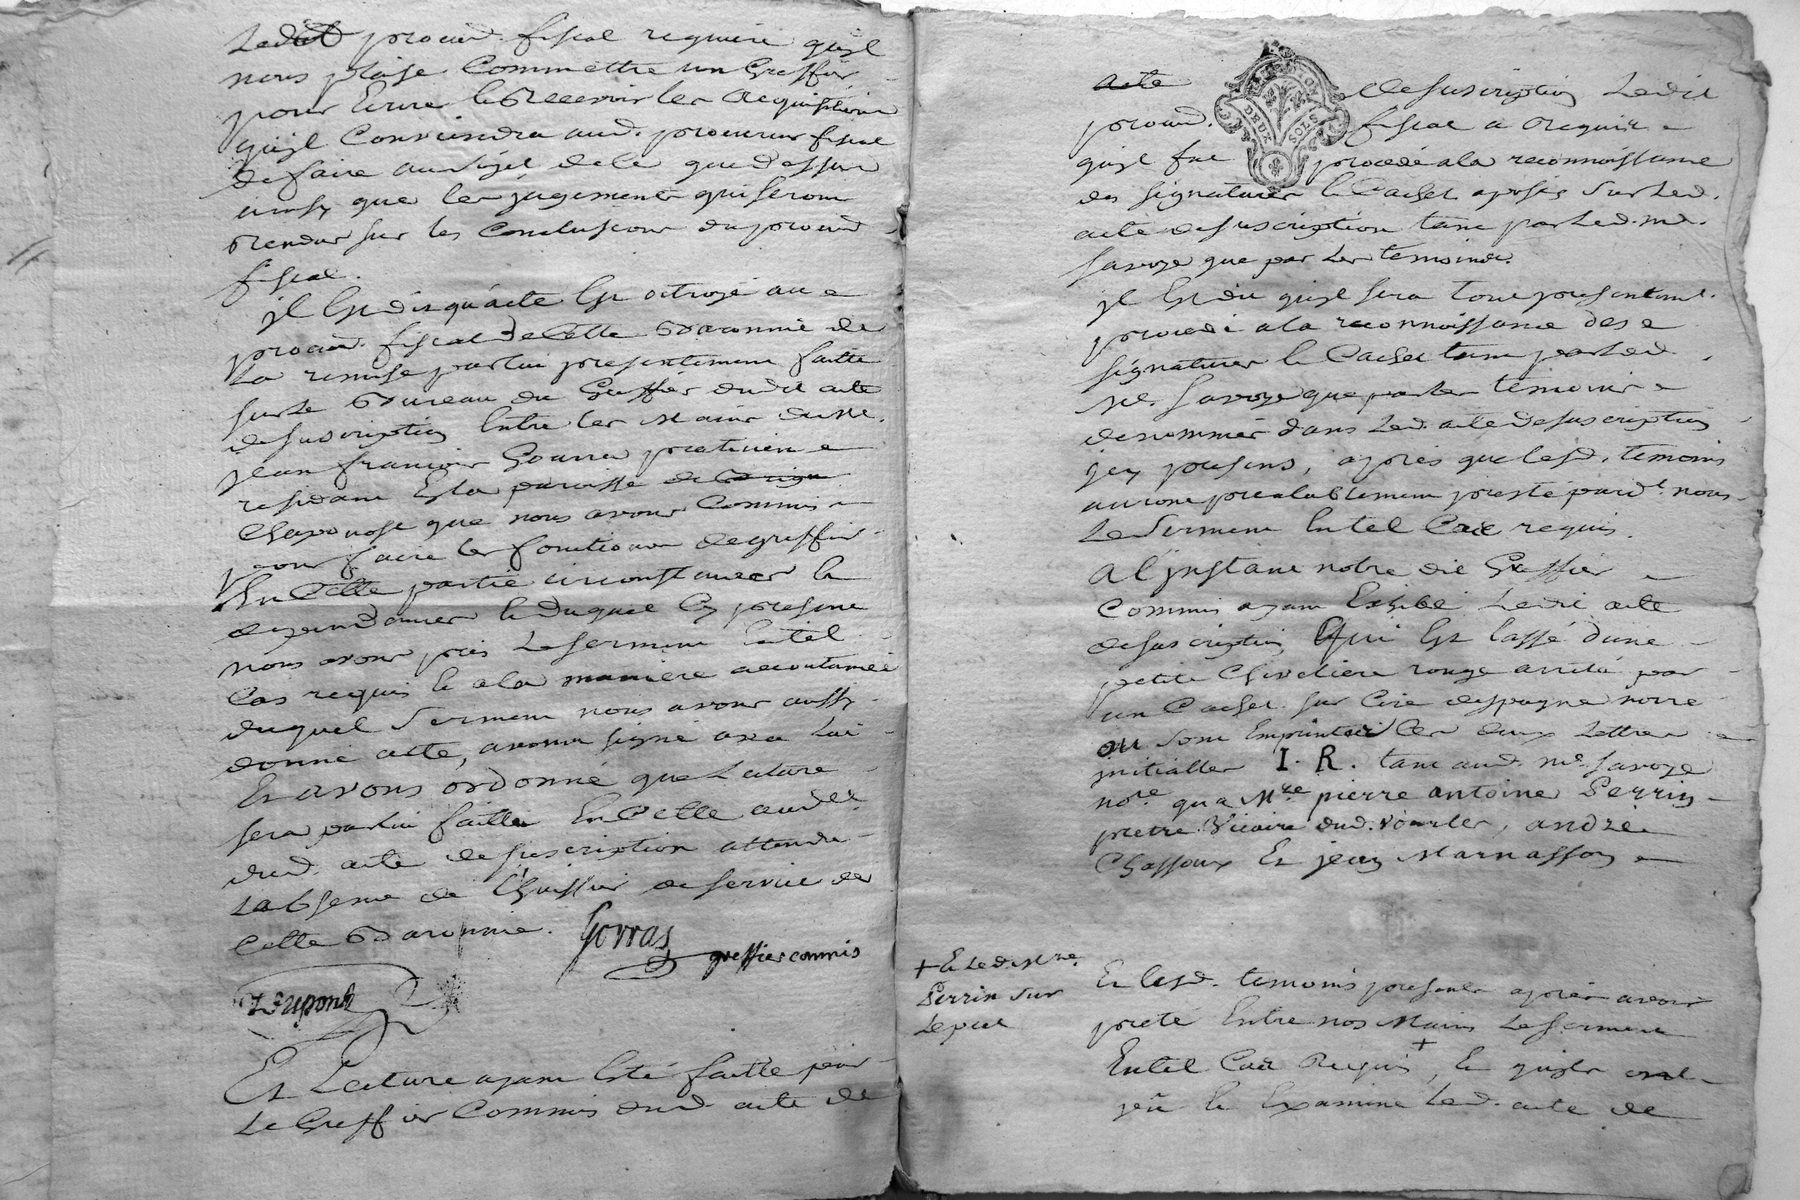 Ledit procur. fiscal requiert quil
nous plaise Commettre un Greffier
pour Ecrire & Recevoir les Requisitions
quil Conviendra aud. procureur fiscal
de faire au sujet de ce que dessus
ainsy que les jugements qui seront
Rendus sur les Conclusions du procur
fiscal.
jl Est dit qu'acte Est octroyé au
procur. fiscal de Cette Baronnie de
La remise par lui presentement faitte
sur Le Bureau du Greffier dudit acte
de suscription Entre les Mains de Me.
jean françois Gourra praticien
residant En la paroisse de
Chaponost que nous avons Commis
pour faire les fonctions de greffier
En Cette partie circonstances &
dependances & duquel Cy present
nous avons pris Le serment En tel
Cas requis & a la maniere accoutumée
duquel serment nous avons aussy
donné acte, avons signé avec Lui
Et avons ordonné que Lecture
sera par lui faitte En Cette audce
dud. acte de suscription attendu
Labsence de Lhuissier de service de
Cette Baronnie.
Gorras
greffier commis
Dupont
Et Lecture ayant Eté faitte par
Le Greffier Commis dud. acte de
acte
DEUX SOLS
de suscription Ledit
procur. fiscal a Requis
quil fut procedé a la reconnoissance
des signatures & Cachet aposés sur Led.
acte de suscription tant par Led. me.
Savoye que par Les temoins.
jl Est dit quil sera tout presentemt.
procedé a la reconnoissance des
signatures & Cachet tant par Led.
Me. Savoye que par les temoins
denommés dans Led. acte de suscription
icy presens, apres que lesd. temoins
auront prealablement presté pard.t nous
Le Serment En tel Cas requis.
A l'jnstant notre dit Greffier
Commis ayant Exhibé Ledit acte
de suscription Qui Est lassé d'une
petite Cheveliere rouge arrêté par
un Cachet sur Cire despagne noire
ou sont Empreintes Les deux Lettres
jnitialles I. R. tant aud. me. Savoye
nore. qu'a Mre pierre antoine Perrin
pretre Vicaire dud. Vourles, andré
Chassoux Et jean Marnasson
Et lesd. temoins presents apres avoir
preté Entre nos Mains Le serment
En tel Cas Requis +, & quils ont
veü & Examiné Led. acte de
+ & Led. Mre.
Perrin sur
Le pect